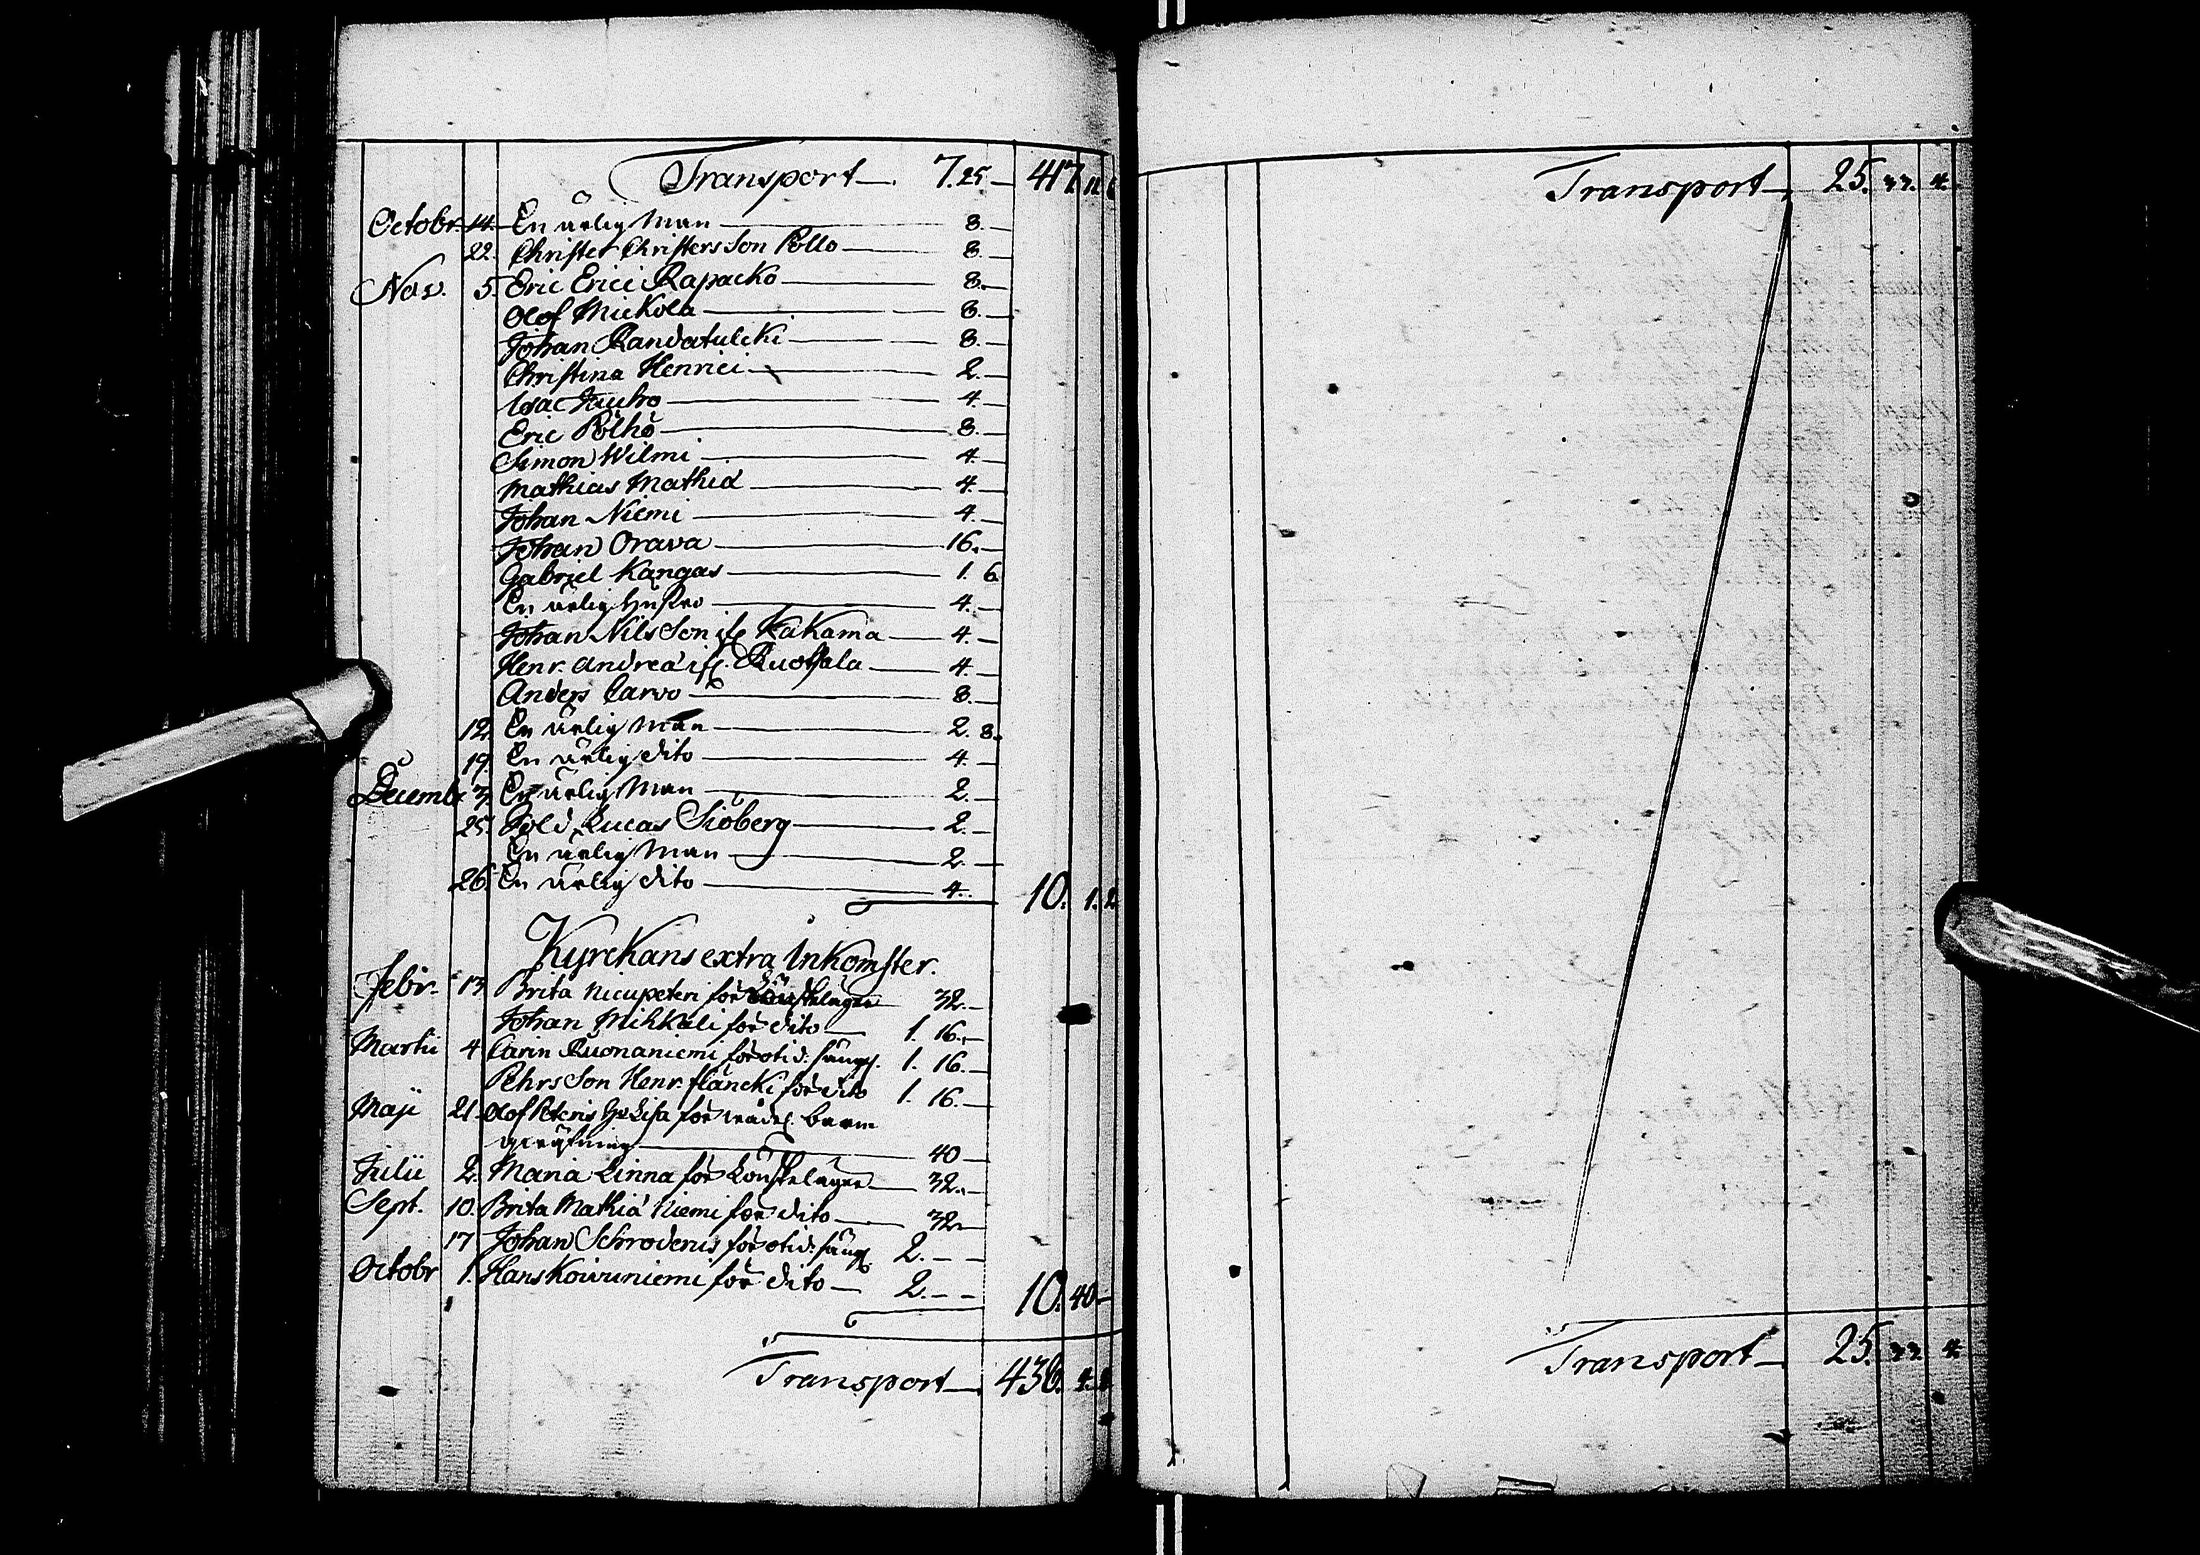 Transport 7. 25. — 417. 12. 6
Octobr. 14. En ärlig Man — 8. —
22. Christer Christers Son Pollo — 8. —
Nov. 5. Eric Erici Rapacko — 8. —
Olof Mickola — 8. —
Johan Randatulcki — 8. —
Christina Henrici — 2. —
Isac Jauho — 4. —
Eric Pölhö — 8. —
Simon Wilmi — 4. —
Mathias Mathiæ — 4. —
Johan Niemi — 4. —
Johan Orava — 16. —
Gabriel Kangas — 1. 6
En ärlig hustro — 4. —
Johan Nils Son if. Kakama — 4. —
Henr. Andreæ if. Ruohala — 4. —
Anders Carvo — 8. —
12. En ärlig Man — 2. 8.
19. En ärlig dito — 4. —
Decembr 3. En ärlig Man — 2. —
25. Sold. Lucas Siöberg — 2. —
En ärlig Man — 2. —
26. En ärlig dito — 4. — 10. 1. 2
Kyrckans extra Inkomster.
Febr. 13. Brita Nicupeteri för Lönskeläger 32. —
Johan Mihkali för dito — 1. 16. —
Martii 4 Carin Ruonaniemi för otid. säng. 1. 16. —
Pehrs Son Henr. fläncki för dito 1. 16. —
Maji 21. Olof Peteris H. Lisa för wådel. barn
qväfning — 40 —
Julii 2. Maria Linna för Lönskeläger — 32. —
Sept. 10. Brita Mathiæ Niemi för dito — 32 —
17 Johan Schroderus för otid. säng. 2. — —
Octobr 1. Hans Koivuniemi för dito — 2. — — 10. 40 —
Transport — 436. 4. 8
Transport — 25. 33. 4.
Transport — 25. 33. 4.